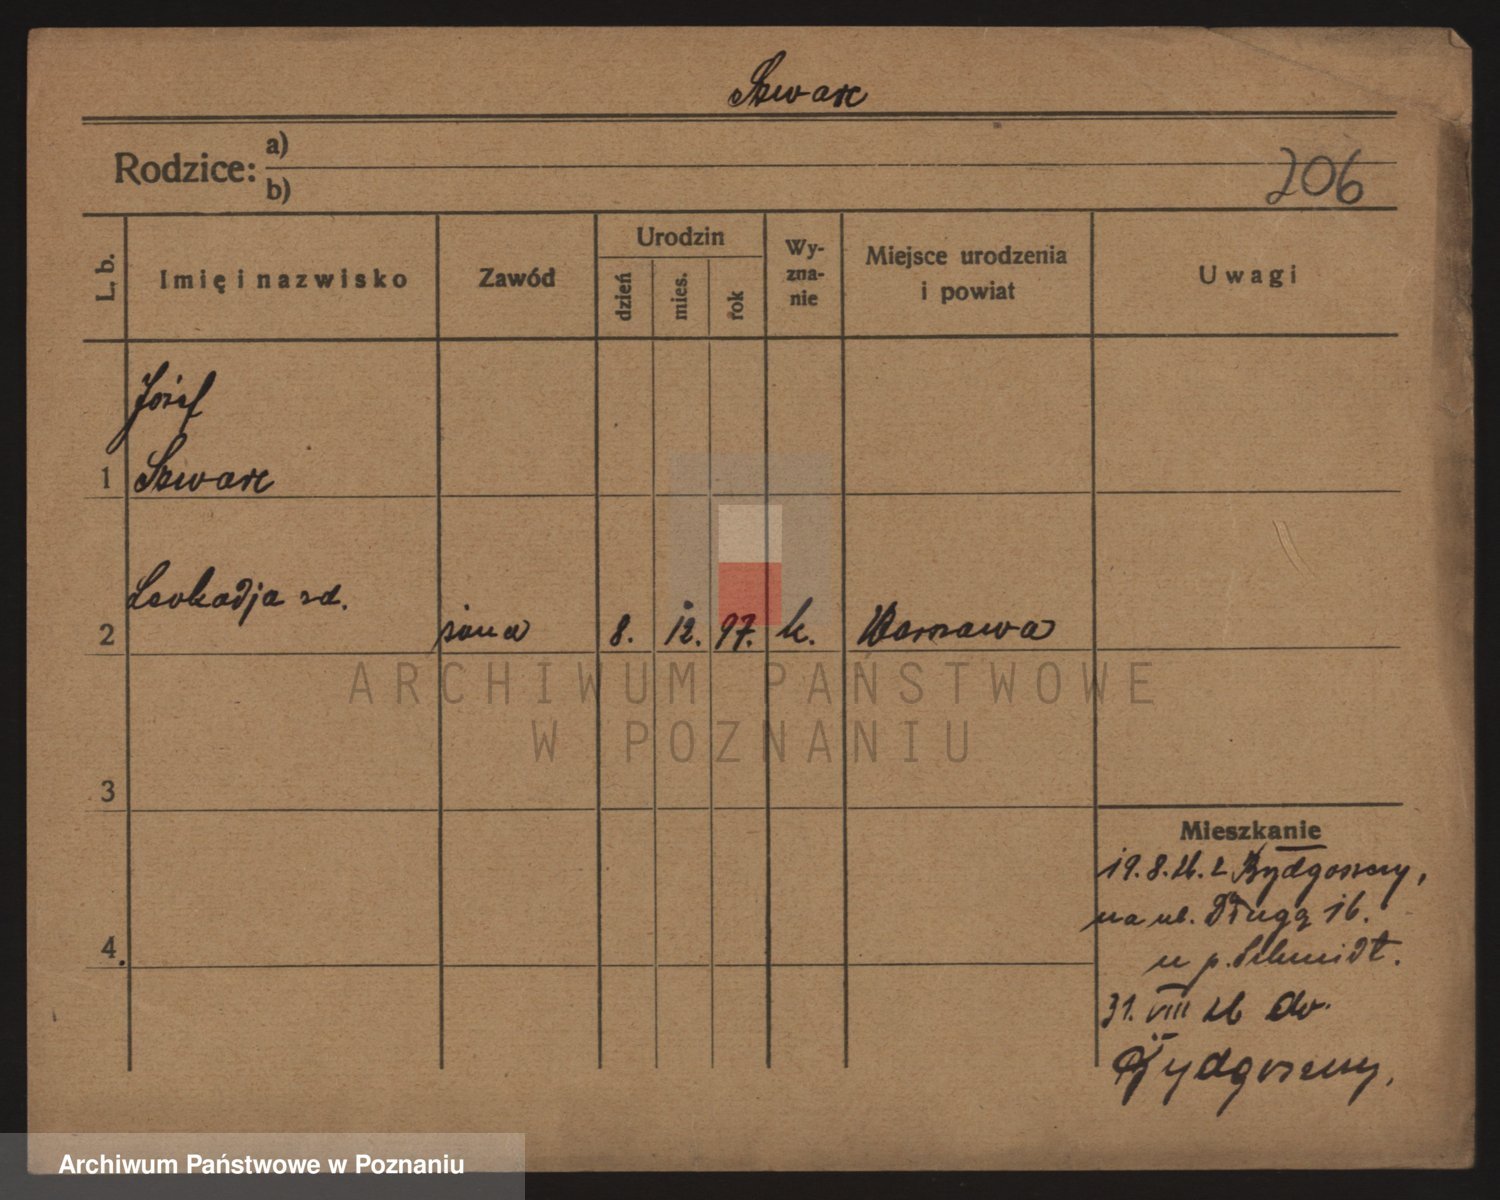 Szwarc
Rodzice: a)
b)
206
L. b.
Imię i nazwisko
Zawód
Urodzin
dzień
mies.
rok
Wy-
zna-
nie
Miejsce urodzenia
i powiat
Uwagi
Józef
1 Szwarc
Leokadja zd.
2 żona 8. 12. 97. k. Warszawa
ARCHIWUM PAŃSTWOWE
W POZNANIU
3
Mieszkanie
19.8.26. z Bydgoszczy,
na ul. Długą 16.
4. u p. Schmidt.
31. VIII 26 do
Bydgoszczy.
Archiwum Państwowe w Poznaniu